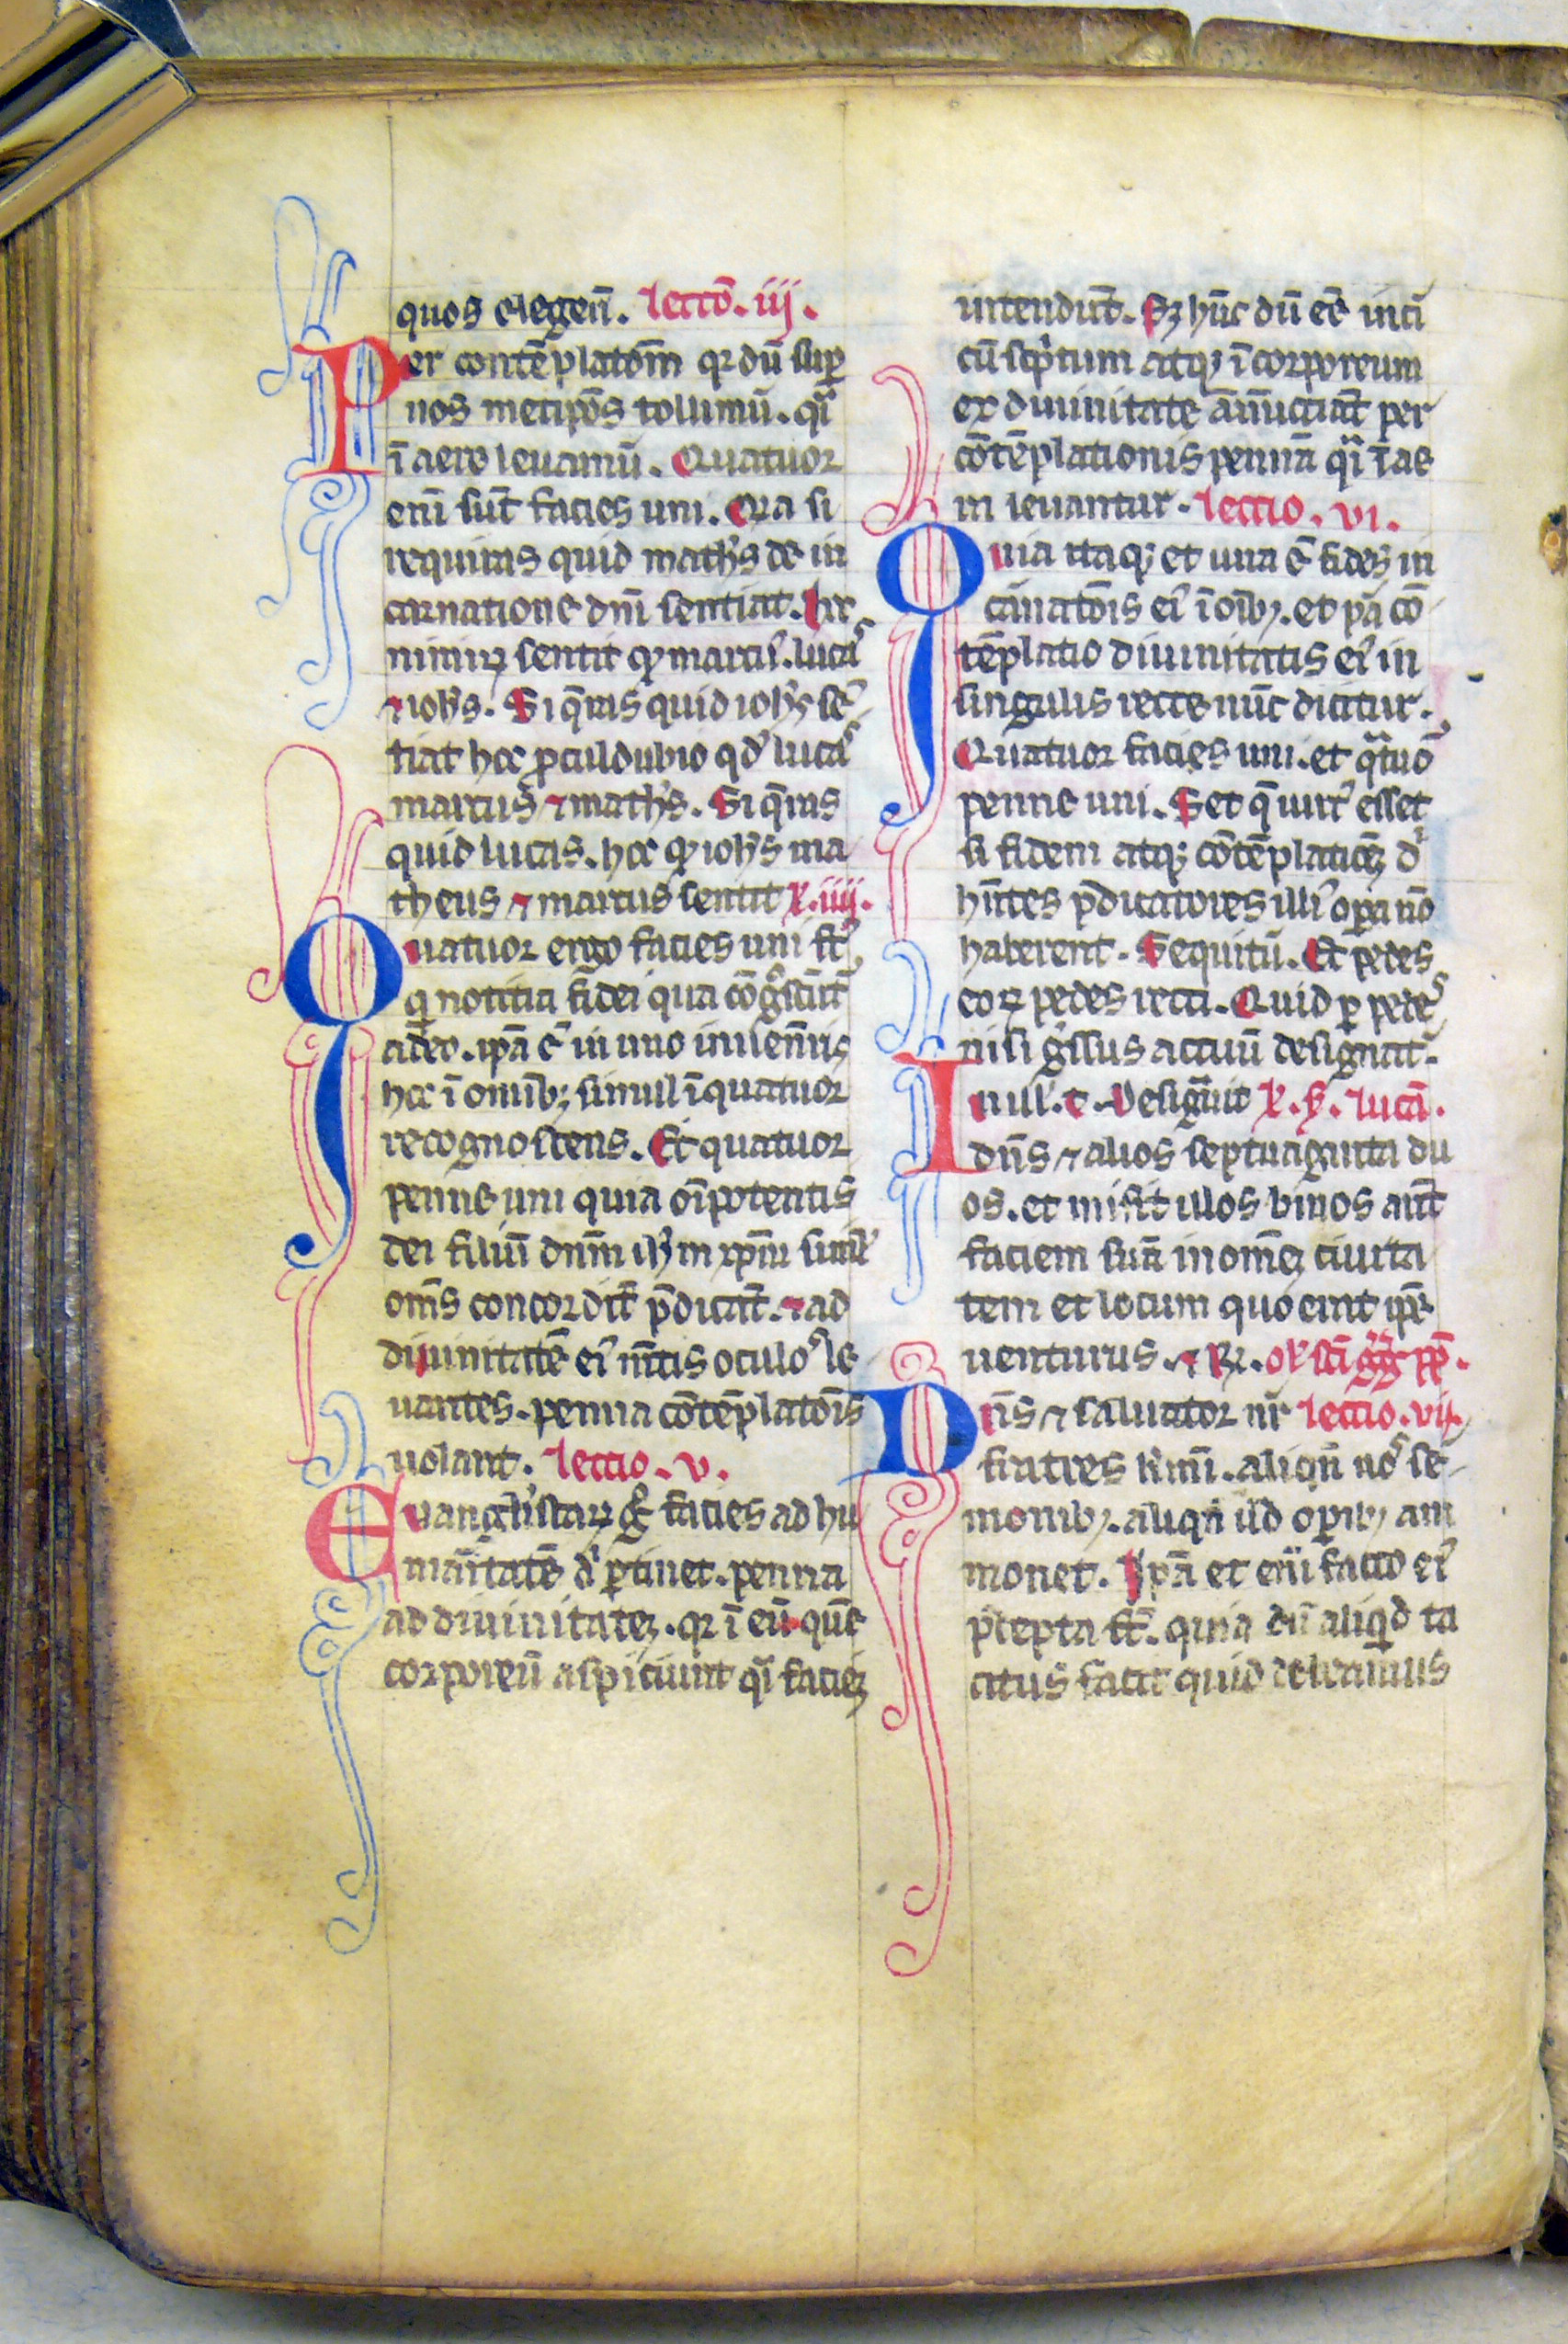 quos elegerū. lectō. iij.
Per contēplatōm qr dū sup
nos metip̄os tollimū. qi
ī aere leuamū. Quatuor
enī sūt facies uni. Qia si
requiras quid math's de in
carnatione dn̄i sentiat. hr
nimirꝝ sentit qꝫ marcꝰ. lucaˢ
⁊ ioh's. Si q̄ras quid ioh's sē
tiat hͦ pculdubio qd' lucaˢ
marcus ⁊ math's. Si q̄ras
quid lucas. hͦ qꝫ ioh's ma
theus ⁊ marcus sentit ł. iiij.
Quatuor ergo facies uni st̄.
q notitia fidei qua cōgͦscūt᷑
a deo. ip̄a ē in uno inuenr̄is
hͦ ī omībꝫ simul ī quatuor
recognoscens. Et quatuor
penne uni quia oīpotentis
dei filiū dnm̄ ih'm xp̄m simil'
om̄s concordit̄ p̄dicāt. ⁊ ad
diuinitatē eiꝰ m̄tis oculoˢ le
uantes. penna cōtēplatōis
uolant. lectio. v.
Euangl'istaꝝ gͦ facies ad hu
manitatē dn̄i ptinet. penna
ad diuinitatēꝫ. qr ī eū quē
corporeū aspiciunt qi facieꝫ
intendūt. Sꝫ hūc dū eē inci
cūscptum atqꝫ īcorporeum
ex diuinitate ānuciāt per
cōtēplationis pennā qi ī ae
m leuantur. lectio. vi.
Quia itaqꝫ et una ē fides in
carnatōis eiꝰ ī oībꝫ. et pa cō
tēplatio diuinitatis eiꝰ in
singulis recte nūc dicitur.
Quatuor facies uni. et qᵃtuō
penne uni. Set q̄ uirt' esset
si fidem atqꝫ cōtēplatiōeꝫ dī
hn̄tes p̄dicatores illiꝰ opa nō
haberent. Sequitū. Et pedes
eoꝝ pedes recti. Quid p pedeˢ
nisi g̓ssus actuū designat᷑.
In ill'. t. Desigᵃuit ł. ſ. lucā.
dn̄s ⁊ alios septuaginta du
os. et misit illos binos an̄t
faciem suā in om̄eꝫ ciuita
tem et locum quo erat ip̄e
uenturus. ⁊ R. oł sc̄i gg pp.
Dn̄s ⁊ saluator nr̄ lectio. vij.
fratres kīmi. aliqn̄ noˢ se
monibꝫ. aliqn̄ u'o opibꝫ am
monet. Ip̄a et enī facto eiꝰ
p̄cepta st̄. quia dū aliqͥd ta
citus facit quid debeamus